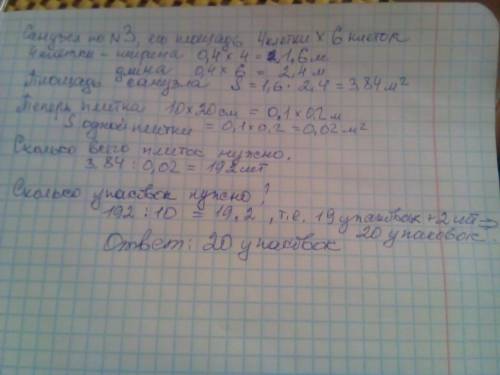 Санузел по №3, его площадь 4 клетки × 6 клеток
4 клетки - ширина 0,4 × 4 = 1,6 м
длина 0,4 × 6 = 2,4 м
Площадь санузла S = 1,6 · 2,4 = 3,84 м²
Теперь плитка 10×20 см = 0,1×0,2 м
S одной плитки = 0,1×0,2 = 0,02 м²
Сколько всего плиток нужно.
3,84 : 0,02 = 192 шт
Сколько упаковок нужно?
192 : 10 = 19,2, т.е. 19 упаковок + 2 шт ⇒
20 упаковок
Ответ: 20 упаковок